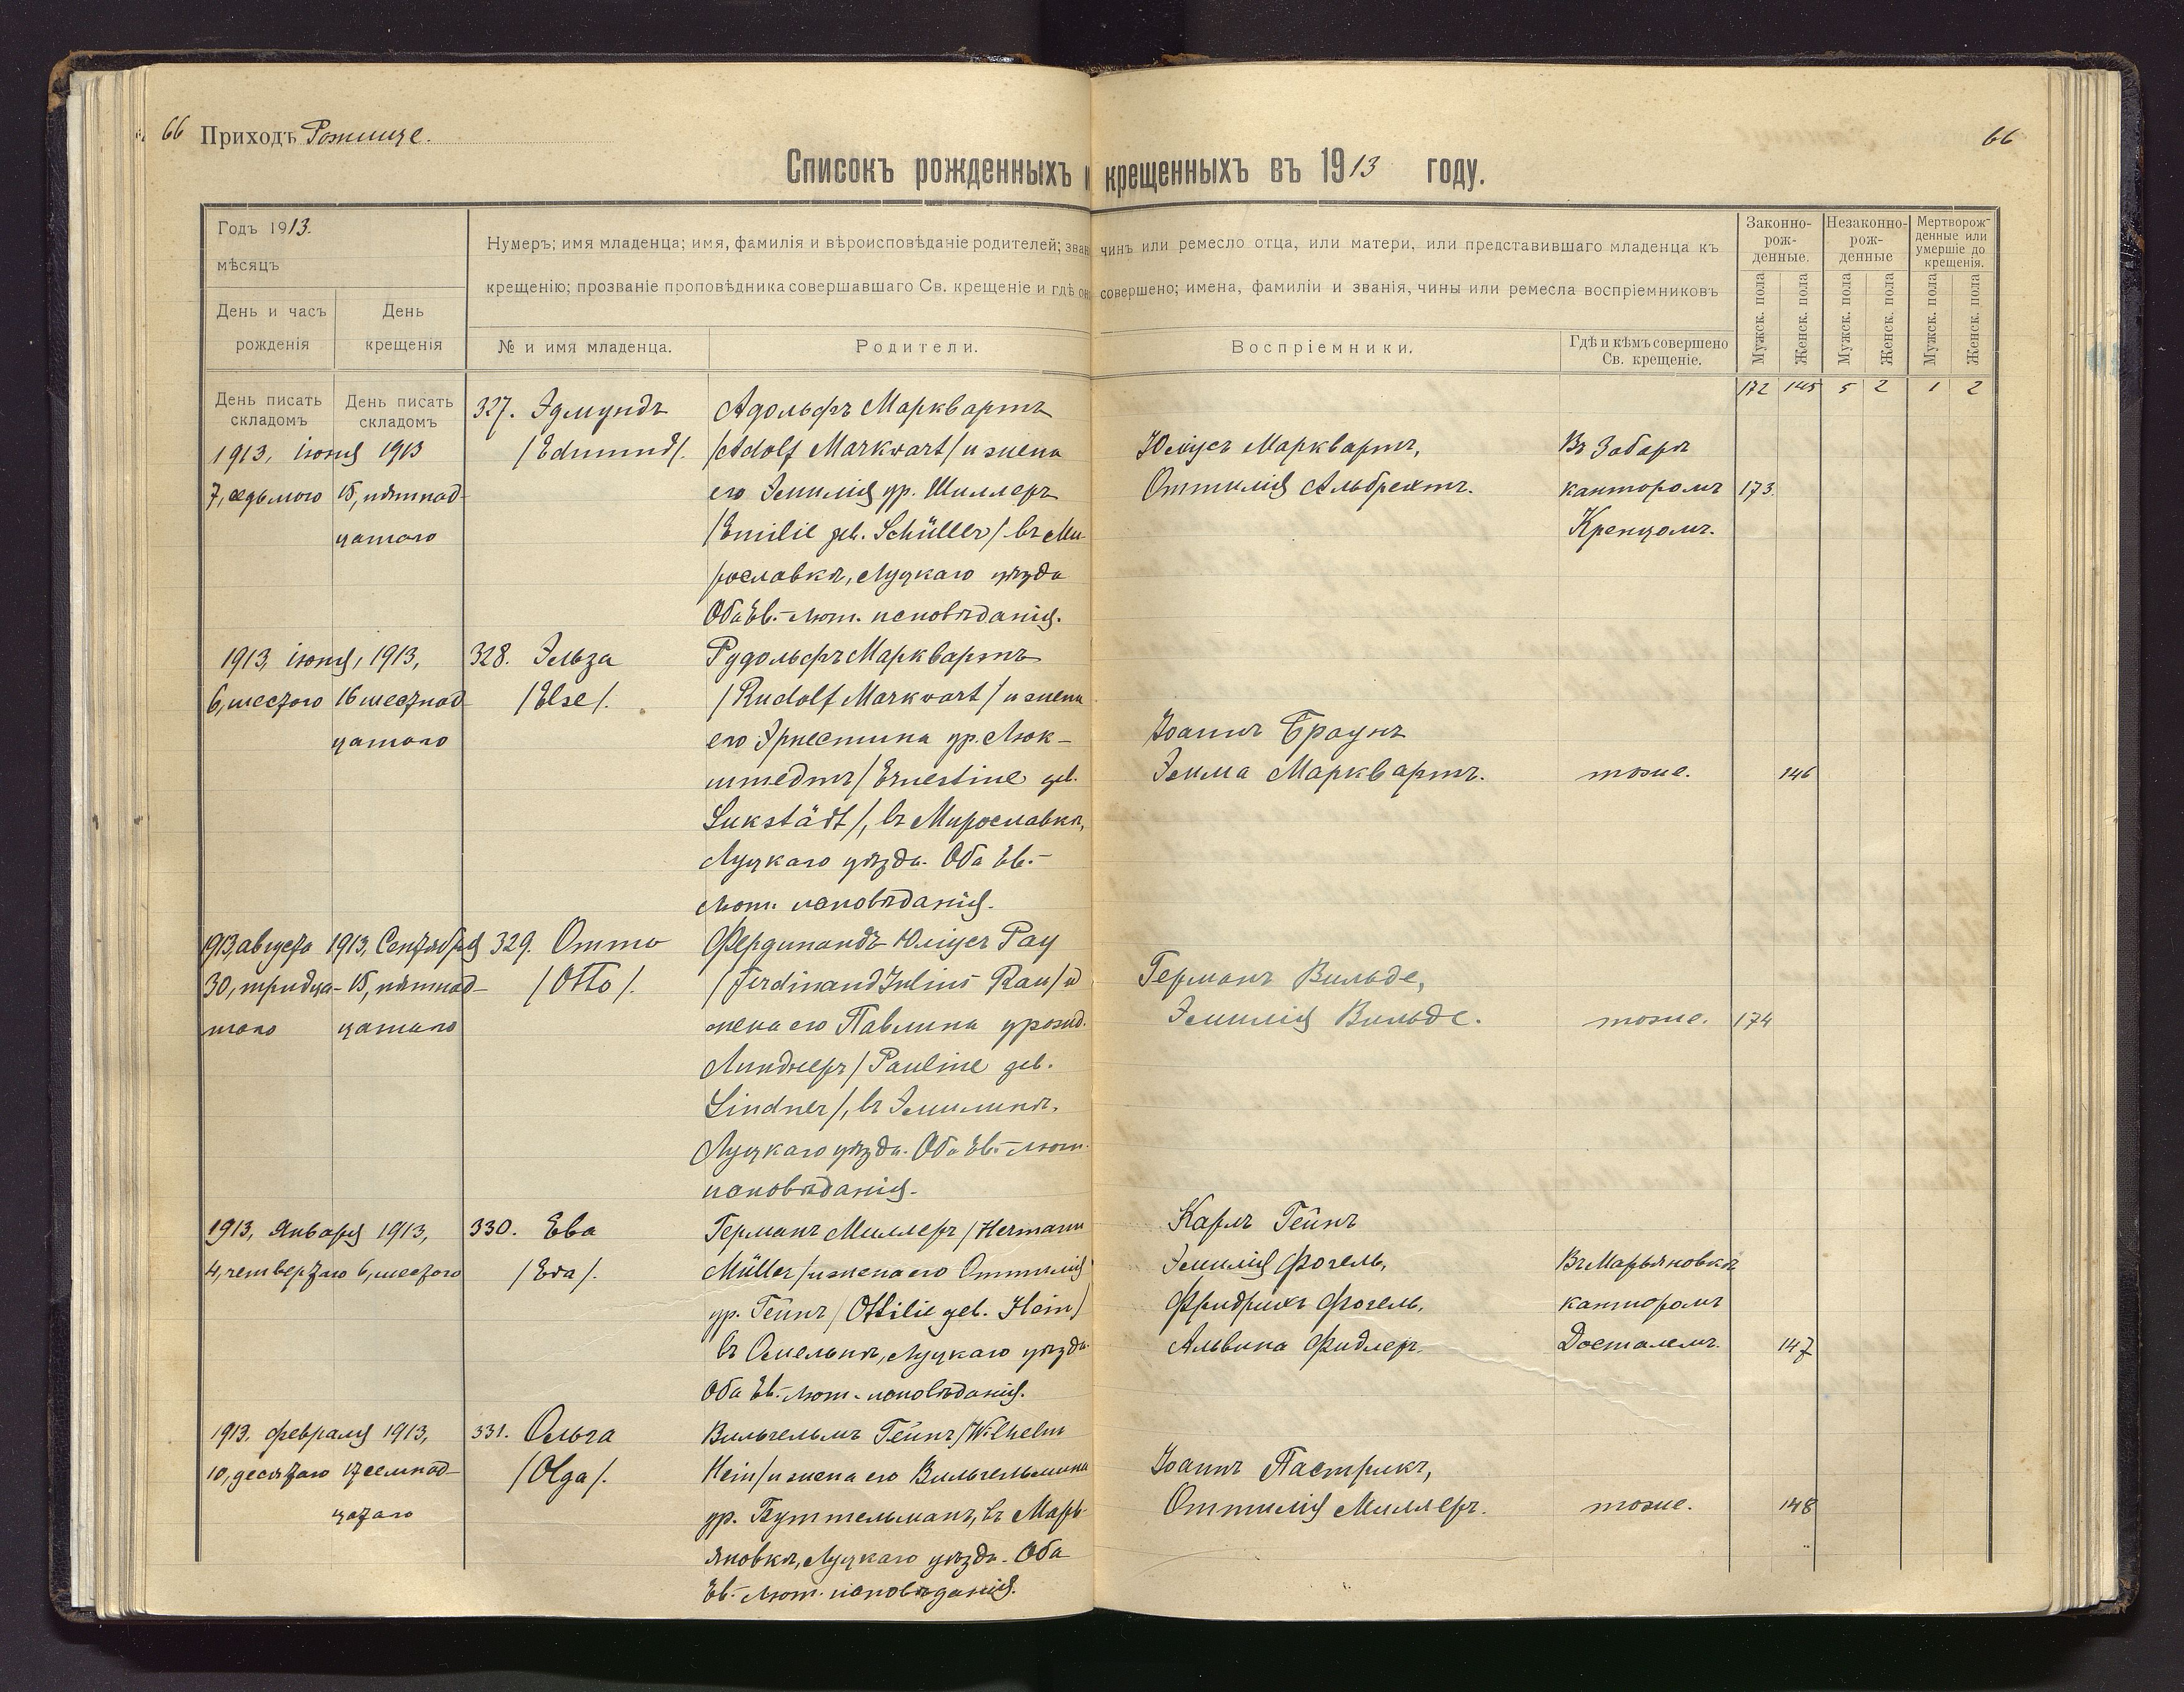 66 Приходъ Рожище.
66
Списокъ рожденныхъ и крещенныхъ въ 1913 году.
Годъ 1913.
мѣсяцъ
День и часъ рожденія
День крещенія
Нумеръ; имя младенца; имя, фамилія и вѣроисповѣданіе родителей; зван чинъ или ремесло отца, или матери, или представившаго младенца къ
крещенію; прозваніе проповѣдника совершавшаго Св. крещеніе и гдѣ он совершено; имена, фамиліи и званія, чины или ремесла воспріемниковъ
№ и имя младенца.
Родители.
Воспріемники.
Гдѣ и кѣмъ совершено
Св. крещеніе.
Законно-
рож-
денные.
Незаконно-
рож-
денные
Мертворож-
денные или
умершіе до
крещенія.
Мужск. пола
Женск. пола
Мужск. пола
Женск. пола
Мужск. пола
Женск. пола
172 145 5 2 1 2
День писать
складомъ
День писать
складомъ
1913, іюня 1913
7, седьмого 15, пятнад-
цатаго
327. Эдмундъ
/Edmund/.
Адольфъ Марквартъ
/Adolf Markwart/ и жена
его Эмилія ур. Шиллеръ
/Emilie geb. Schüller/ въ Ми-
рославкѣ, Луцкаго уѣзда
Оба Ев.-Лют. исповѣданія.
Юліусъ Марквартъ,
Оттилія Альбрехтъ.
Въ Забарѣ
канторомъ 173.
Кренцомъ.
1913, іюня, 1913,
6, шестого 16 шестнад-
цатаго
328. Эльза
/Else/.
Рудольфъ Марквартъ
/Rudolf Markwart/ и жена
его Эрнестина ур. Люк-
штедтъ /Ernestine geb.
Lukstädt/, въ Мирославкѣ,
Луцкаго уѣзда. Оба Ев.-
Лют. исповѣданія.
Іоаннъ Браунъ
Эмма Марквартъ.
тоже. 146
1913, августа 1913, Сентября
30, тридца- 15, пятнад-
таго цатаго
329. Отто
/Otto/.
Фердинандъ Юліусъ Рау
/Ferdinand Julius Rau/ и
жена его Павлина урожд.
Линднеръ /Pauline geb.
Lindner/, въ Эмилинѣ,
Луцкаго уѣзда. Оба Ев.-Лют.
исповѣданія.
Германъ Вильде,
Эмилія Вильде.
тоже. 174
1913, Января 1913,
4, четвертаго 6, шестого
330. Ева
/Eva/.
Германъ Миллеръ /Hermann
Müller/ и жена его Оттилія
ур. Гейнъ /Ottilie geb. Hein/
въ Омельнѣ, Луцкаго уѣзда
Оба Ев.-Лют. исповѣданія.
Карлъ Гейнъ
Эмилія Фогель,
Фридрихъ Фогель,
Альвина Фидлеръ.
Въ Марьяновкѣ
канторомъ
Досталемъ. 147
1913, февраля 1913,
10, десятаго 17 семнад-
цатаго
331. Ольга
/Olga/.
Вильгельмъ Гейнъ /Wilhelm
Hein/ и жена его Вильгельмина
ур. Буттельманъ, въ Марь-
яновкѣ, Луцкаго уѣзда. Оба
Ев.-Лют. исповѣданія.
Іоаннъ Пастрикъ,
Оттилія Миллеръ.
тоже. 148